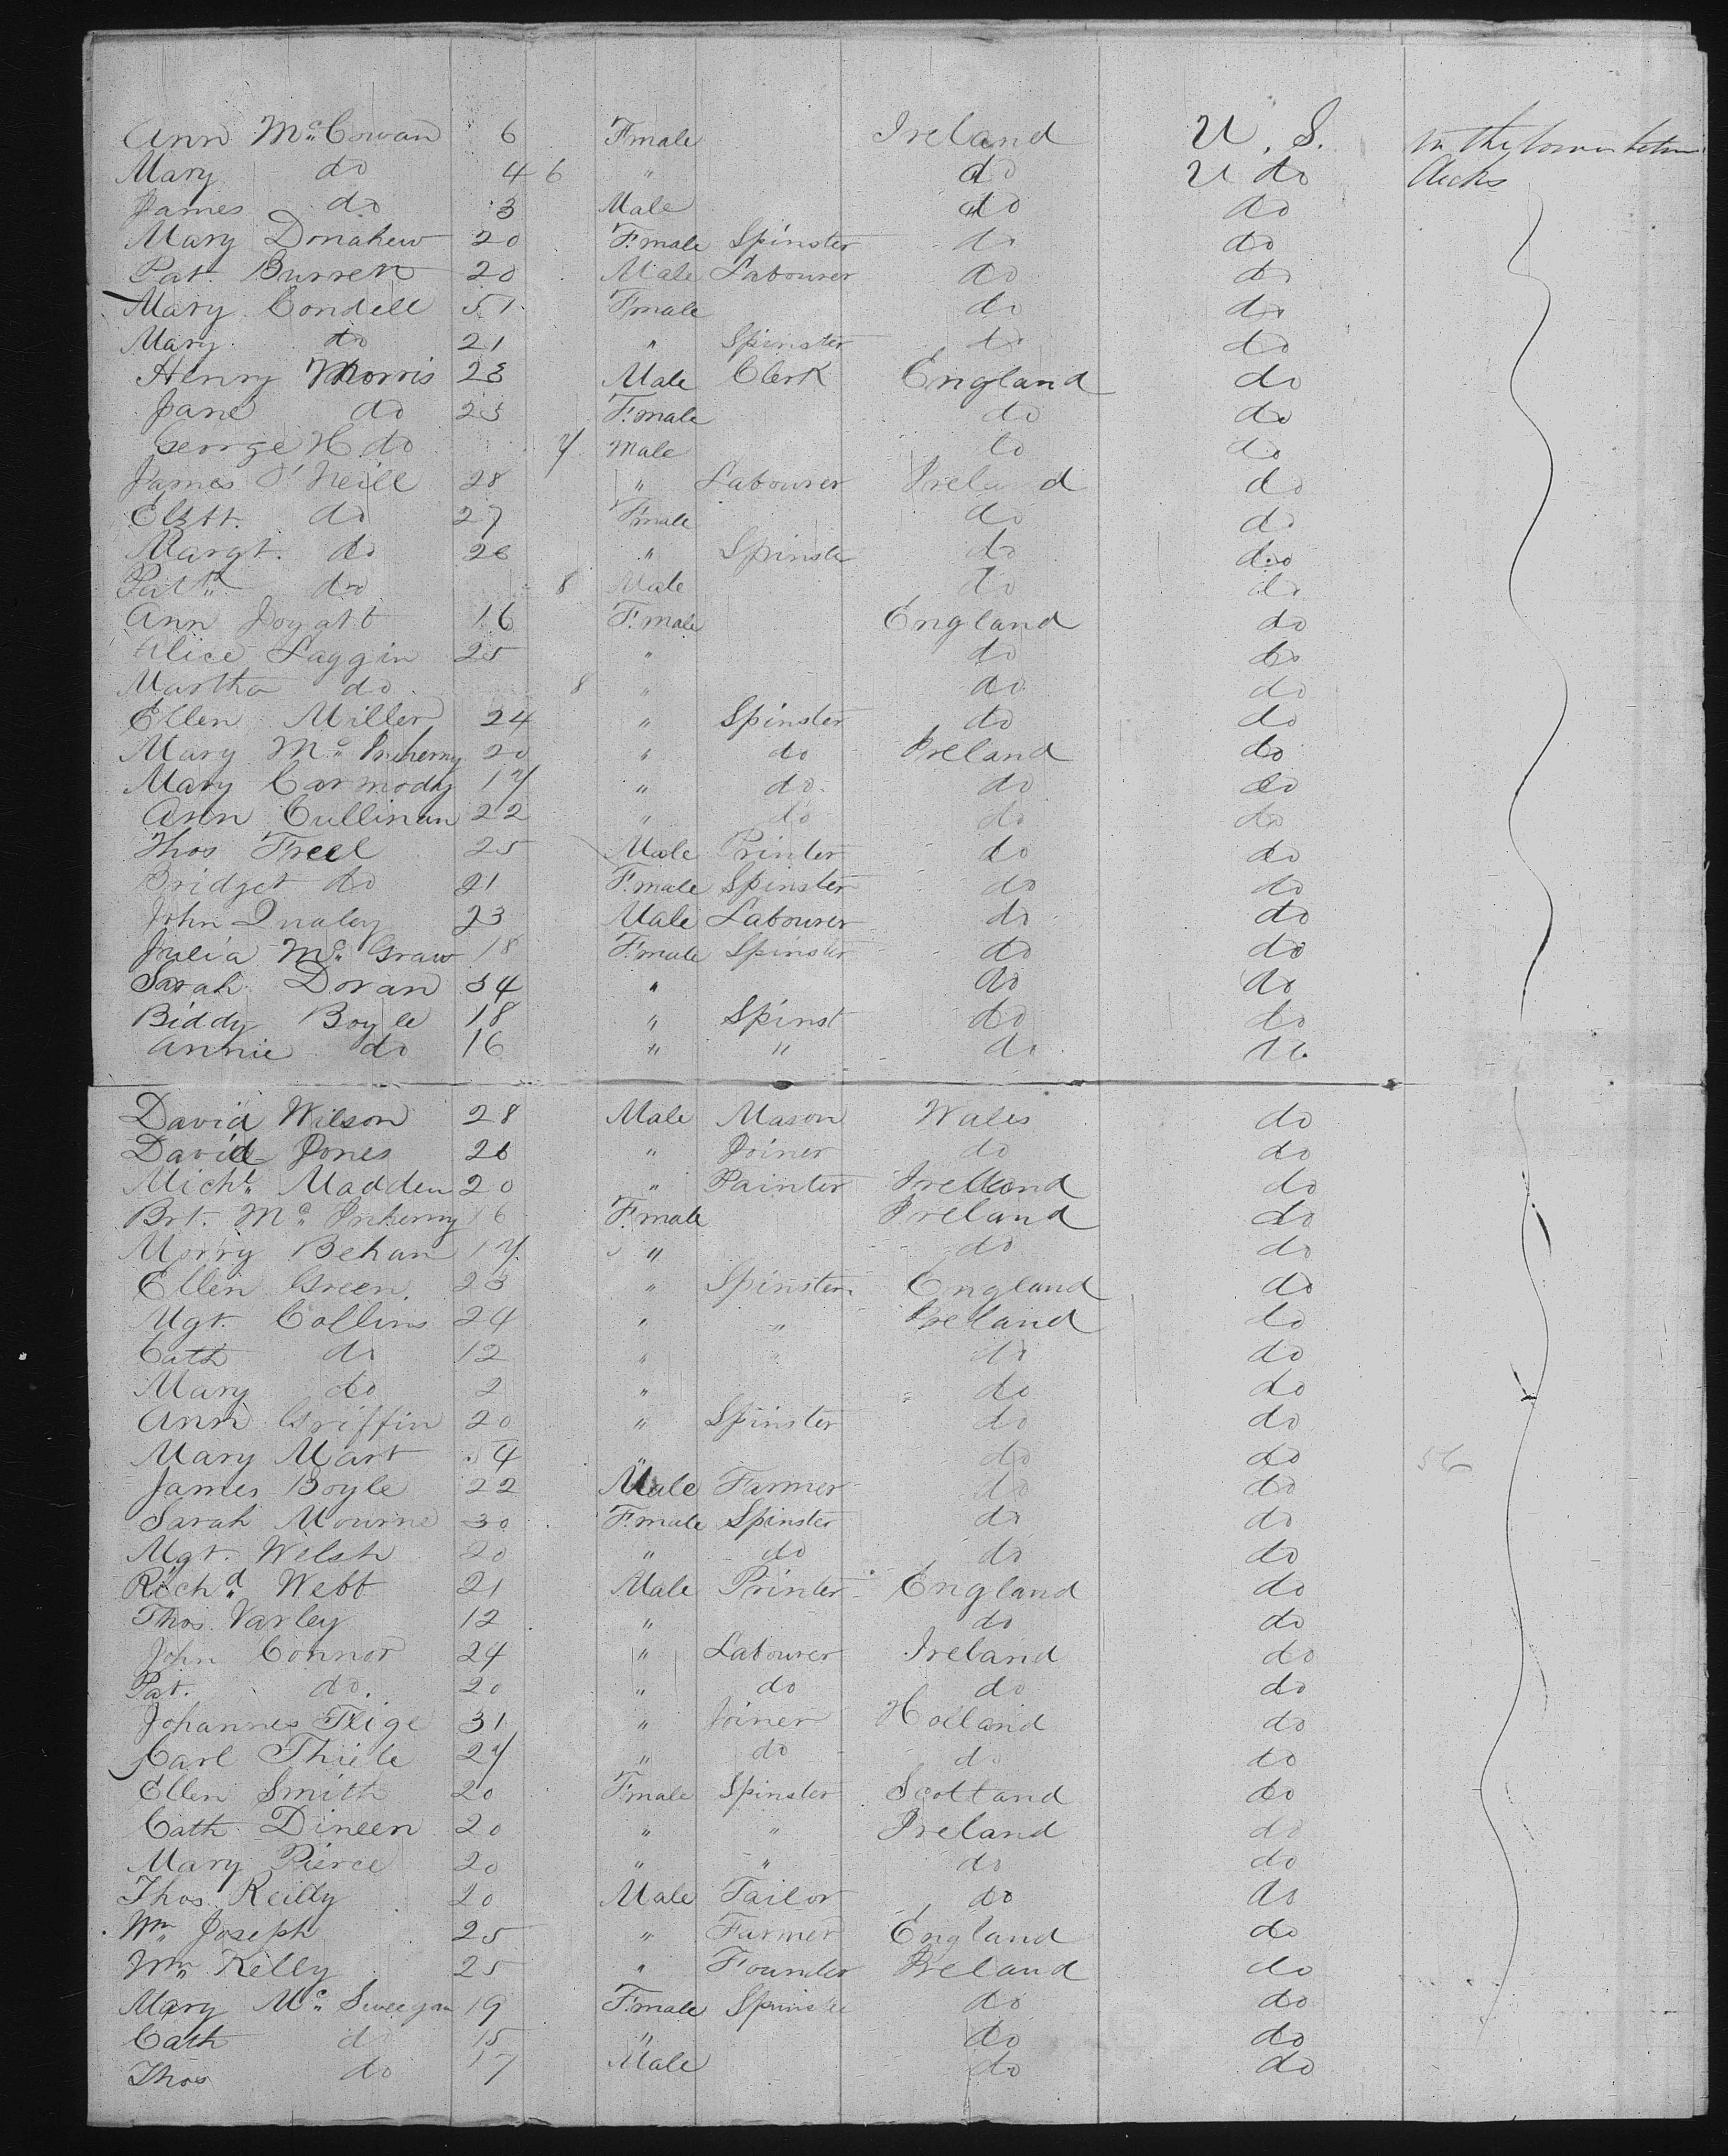 Ann Mc. Cowan 6 Fmale Ireland U. S. in the lower between
Mary do 4 6 " do U do decks
James do 3 Male do do
Mary Donahew 20 F.male Spinster do do
Pat. Burrett 20 Male Labourer do do
Mary Condell 51 Fmale do do
Mary do 21 " Spinster do do
Henry Morris 23 Male Clerk England do
Jane do 23 F.male do do
George H do 7 Male do do
James O'Neill 28 " Labourer Ireland do
Elztt. do 27 Fmale do do
Margt. do 26 " Spinste do do
Patk. do 8 Male do do
Ann Joyatt 16 F.male England do
Alice Laggin 25 " do do
Martha do 8 " do do
Ellen Miller 24 " Spinster do do
Mary Mc. Inherny 20 " do Ireland do
Mary Carmody 17 " do do do
Ann Cullinan 22 " do do do
Thos Freel 25 Male Printer do do
Bridget do 21 F.male Spinster do do
John Qualey 23 Male Labourer do do
Julia Mc. Graw 18 F.male Spinster do do
Sarah Doran 34 " do do
Biddy Boyle 18 " Spinst do do
Annie do 16 " " do
David Wilson 28 Male Mason Wales do
David Jones 26 " Joiner do do
Michl. Madden 20 " Painter Ireland do
Brt. Mc. Inherny 16 F.male Ireland do
Morry Behan 17 " do do
Ellen Green 23 " Spinster England do
Mgt. Collins 24 " " Ireland do
Cath do 12 " do do
Mary do 2 " do do
Ann Griffin 20 " Spinster do do
Mary Mart 4 " do do 56
James Boyle 22 Male Farmer do do
Sarah Mourne 30 F.male Spinster do do
Mgt. Welsh 20 " do do do
Richd. Webb 21 Male Printer England do
Thos. Varley 12 " do do
John Connor 24 " Labourer Ireland do
Pat. do. 20 " do do do
Johannes Flige 31 " Joiner Holland do
Carl Thiele 27 " do do do
Ellen Smith 20 F.male Spinster Scotland do
Cath Dineen 20 " " Ireland do
Mary Pierce 20 " " do do
Thos. Reilly 20 Male Tailor do do
Wm. Joseph 25 " Farmer England do
Wm. Kelly 25 " Founder Ireland do
Mary Mc. Sweegan 19 F.male Spinster do do
Cath do 15 " do do
Thos do 17 Male do do